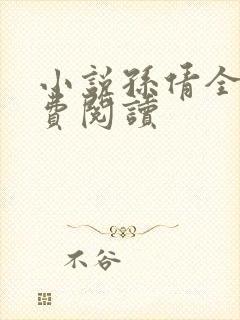 小說孫倩全
費閱讀
不谷